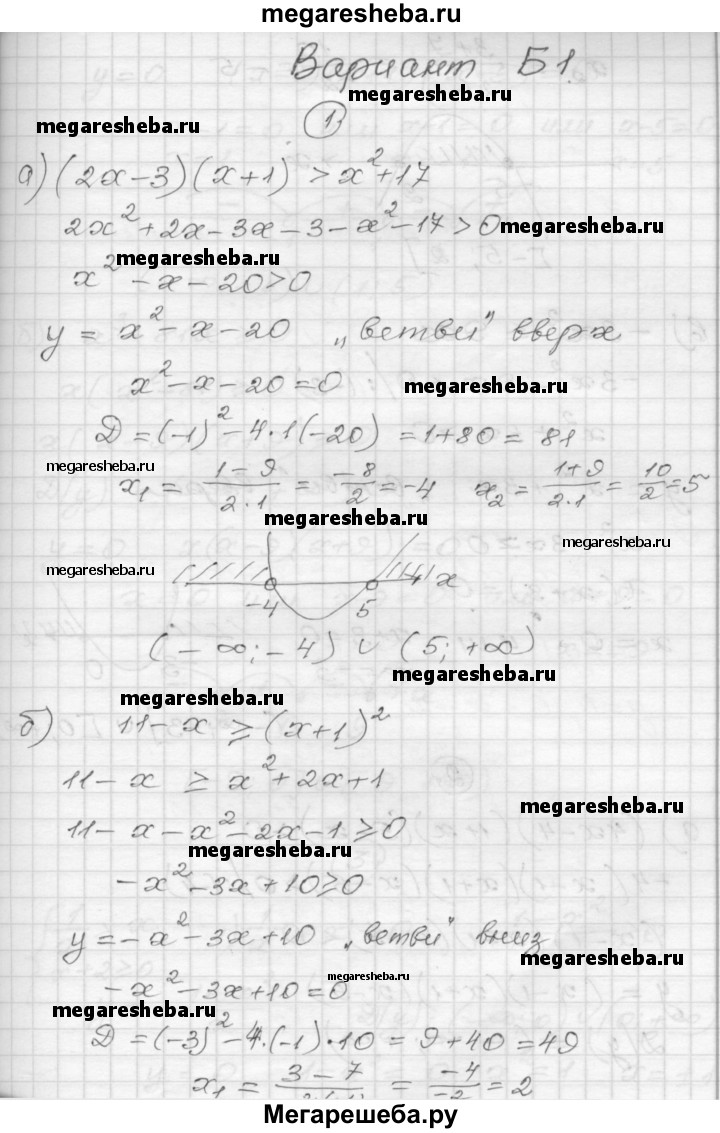 megaresheba.ru
Вариант Б1
megaresheba.ru
megaresheba.ru
1
а) (2x-3)(x+1) > x²+17
2x²+2x-3x-3-x²-17>0
megaresheba.ru
megaresheba.ru
x²-x-20>0
y = x²-x-20 „ветви" вверх
x²-x-20=0
megaresheba.ru
D=(-1)²-4·1(-20) = 1+80 = 81
megaresheba.ru
x₁ = (1-9)/(2·1) = -8/2 = -4 x₂ = (1+9)/(2·1) = 10/2 = 5
megaresheba.ru
megaresheba.ru
megaresheba.ru
x
-4 5
(-∞; -4) ∪ (5; +∞)
megaresheba.ru
megaresheba.ru
б) 11-x ≥ (x+1)²
11-x ≥ x²+2x+1
megaresheba.ru
11-x-x²-2x-1≥0
megaresheba.ru
-x²-3x+10≥0
y=-x²-3x+10 „ветви" вниз
megaresheba.ru
megaresheba.ru
-x²-3x+10=0
megaresheba.ru
D=(-3)²-4·(-1)·10 = 9+40=49
x₁ = 3-7 = -4/-2 = 2
Мегарешеба.ру